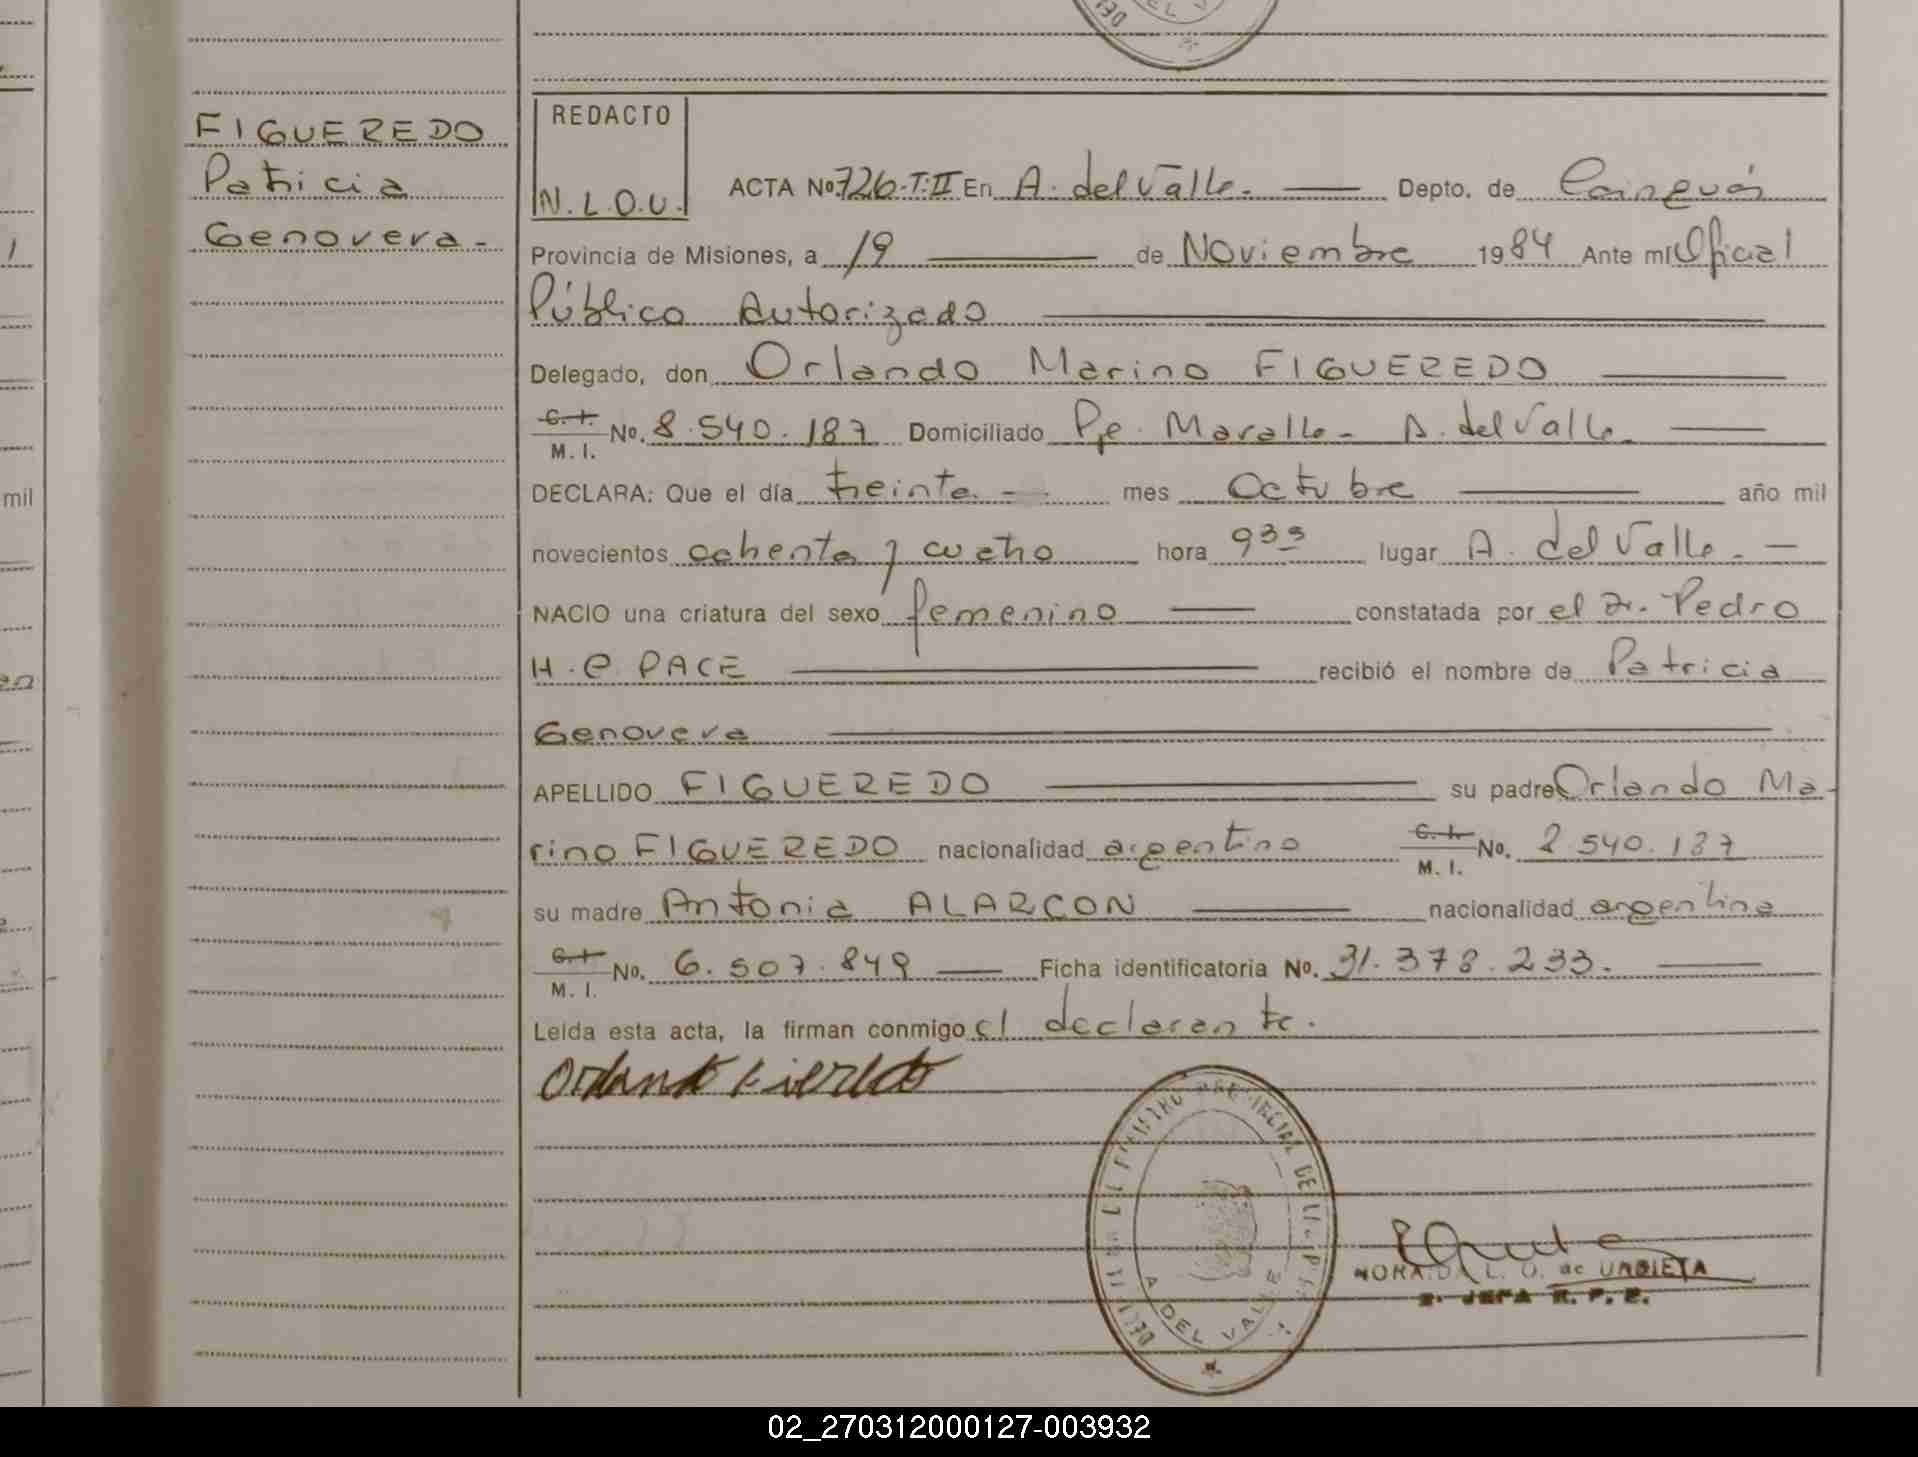 FIGUEREDO
Patricia
Genoveva.-
REDACTO
N.L.O.U.
ACTA No. 726-T:II En A. del Valle.- Depto. de Cainguás
Provincia de Misiones, a 19 de Noviembre 1984 Ante mi Oficial
Público Autorizado
Delegado, don Orlando Marino FIGUEREDO
C. I. M. I. No. 8.540.187 Domiciliado Pje. A. del Valle.
DECLARA: Que el día treinta - mes Octubre año mil
novecientos ochenta y cuatro hora 9 35 lugar A. del Valle. -
NACIO una criatura del sexo femenino constatada por el Dr. Pedro
H. C. PACE recibió el nombre de Patricia
Genoveva
APELLIDO FIGUEREDO su padre Orlando Ma-
rino FIGUEREDO nacionalidad argentino C. I. M. I. No. 8.540.187
su madre Antonia ALARCON nacionalidad argentina
C. I. M. I. No. 6.507.849 Ficha identificatoria No. 31.378.233.
Leida esta acta, la firman conmigo el declarante.
A DEL VALLE
L. O. de URBIETA
JEFA R. P. P.
mil
02_270312000127-003932